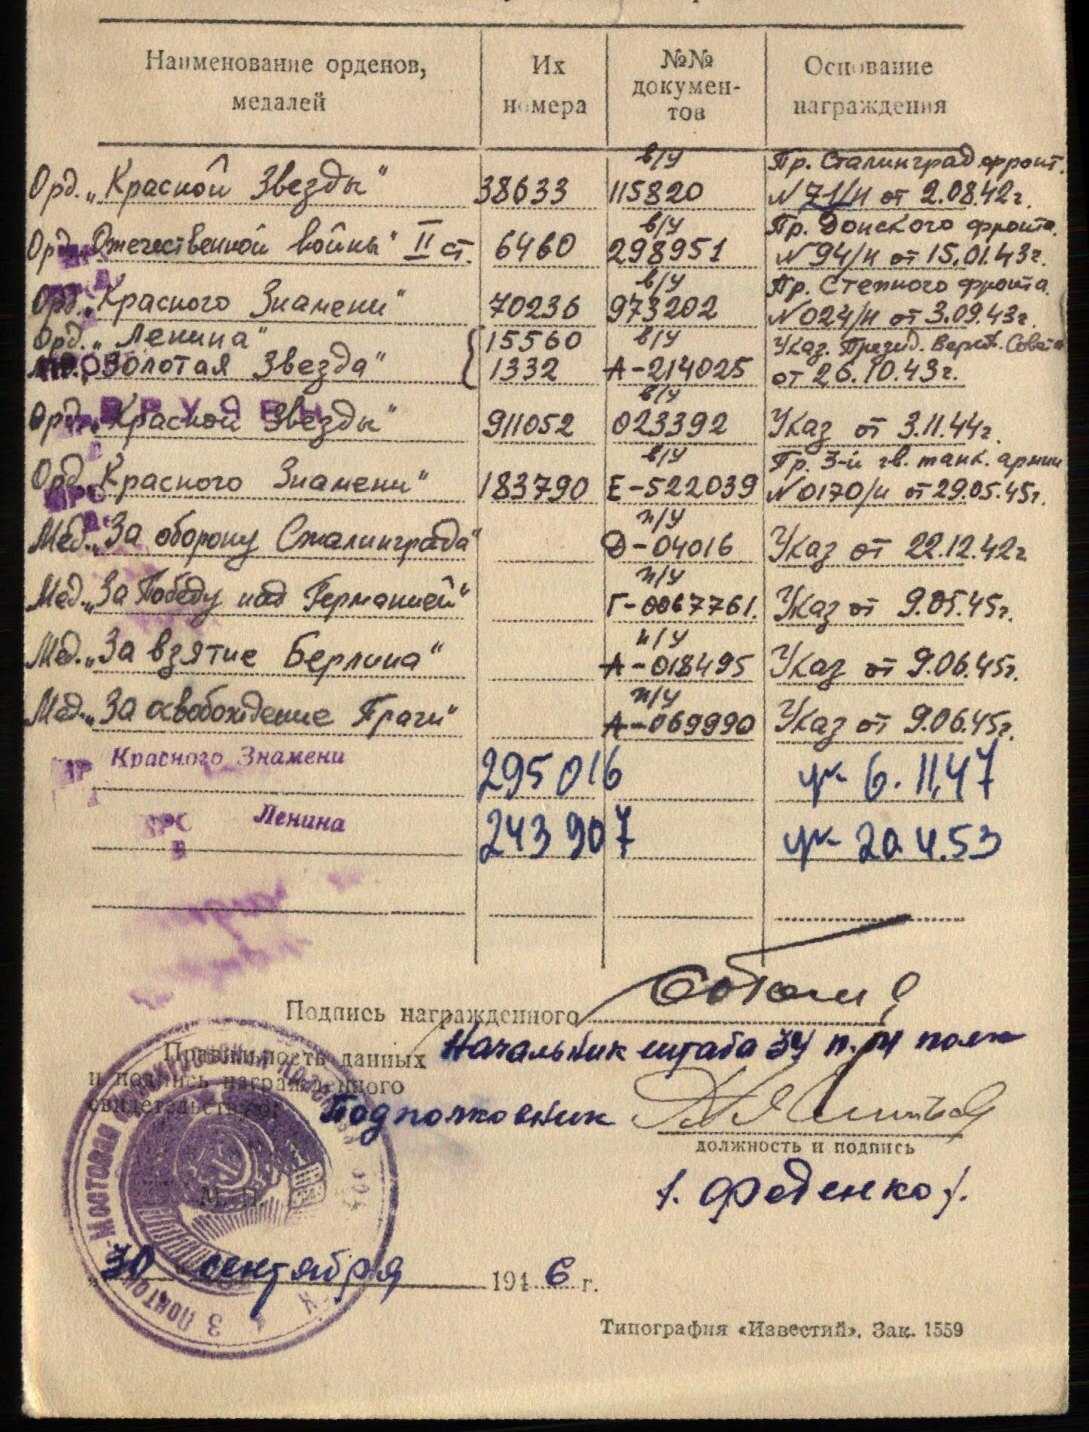 Наименование орденов, медалей | Их номера | №№ документов | Основание награждения
Орд. „Красной Звезды" | 38633 | в/у 115820 | Пр. Сталинград фронт. №71/н от 2.08.42г.
Орд. „Отечественной войны" II ст. | 6460 | в/у 298951 | Пр. Донского фронта. №94/н от 15.01.43г.
Орд. „Красного Знамени" | 70236 | в/у 973202 | Пр. Степного фронта. №024/н от 3.09.43г.
Орд. „Ленина" | 15560 | в/у | Указ. Презид. Верх. Совета
„Золотая Звезда" | 1332 | А-214025 | от 26.10.43г.
ВРУЧЕН
Орд. „Красной Звезды" | 911052 | в/у 023392 | Указ от 3.11.44г.
Орд. „Красного Знамени" | 183790 | в/у Е-522039 | Пр. 3-й гв. танк. армии №0170/н от 29.05.45г.
Мед. „За оборону Сталинграда" | п/у Д-04016 | Указ от 22.12.42г
Мед. „За Победу над Германией" | п/у Г-0067761. | Указ от 9.05.45г.
Мед. „За взятие Берлина" | п/у А-018495 | Указ от 9.06.45г.
Мед. „За освобождение Праги" | п/у А-069990 | Указ от 9.06.45г.
Красного Знамени | 295016 | ук 6.11.47
Ленина | 243907 | ук 20.4.53
Подпись награжденного
Правильность данных Начальник штаба полк
и подпись награжденного
свидетельствую: Подполковник
должность и подпись
М. П.
/. Феденко /.
„30 сентября 1946 г.
Типография «Известий». Зак. 1559